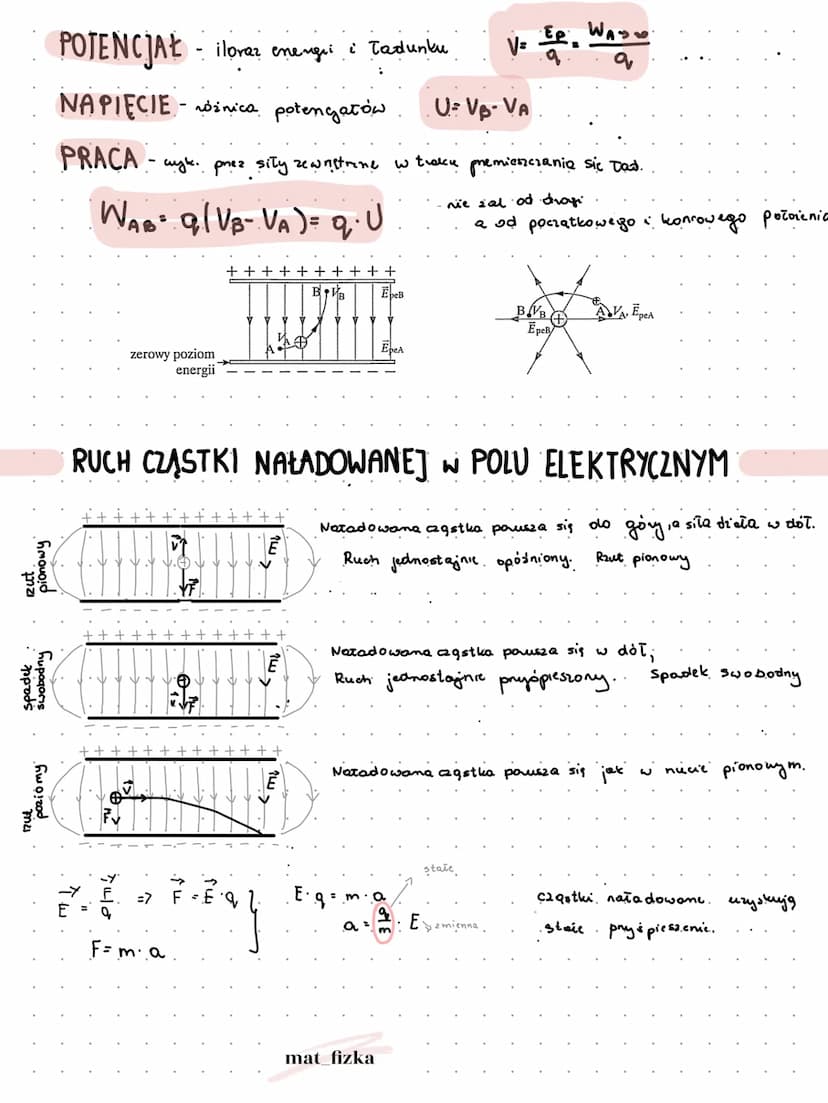 POTENCJAŁ - iloraz energii i ładunku V = Ep/q = W A→∞/q
NAPIĘCIE - różnica potencjałów U = VB - VA
PRACA - wyk. przez siły zewnętrzne w trakcie przemieszczania się ład.
WAB = q(VB - VA) = q · U
- nie zal od drogi
a od początkowego i końcowego położenia
+ + + + + + + + + +
B VB E⃗peB
VA
A E⃗peA
zerowy poziom
energii
B VB A VA, E⃗peA
E⃗peB
RUCH CZĄSTKI NAŁADOWANEJ w POLU ELEKTRYCZNYM
rzut
pionowy
v⃗ E⃗
F⃗
Naładowana cząstka porusza się do góry, a siła działa w dół.
Ruch jednostajnie opóźniony. Rzut pionowy
spadek
swobodny
E⃗
v⃗ F⃗
Naładowana cząstka porusza się w dół,
Ruch jednostajnie przyśpieszony. Spadek swobodny
rzut
poziomy
v⃗ E⃗
F⃗
Naładowana cząstka porusza się jak w rzucie pionowym.
E⃗ = F⃗/q => F⃗ = E⃗ · q
F = m · a
E · q = m · a
stałe
a = q/m · E zmienna
cząstki naładowane uzyskują
stałe przyśpieszenie.
mat_fizka